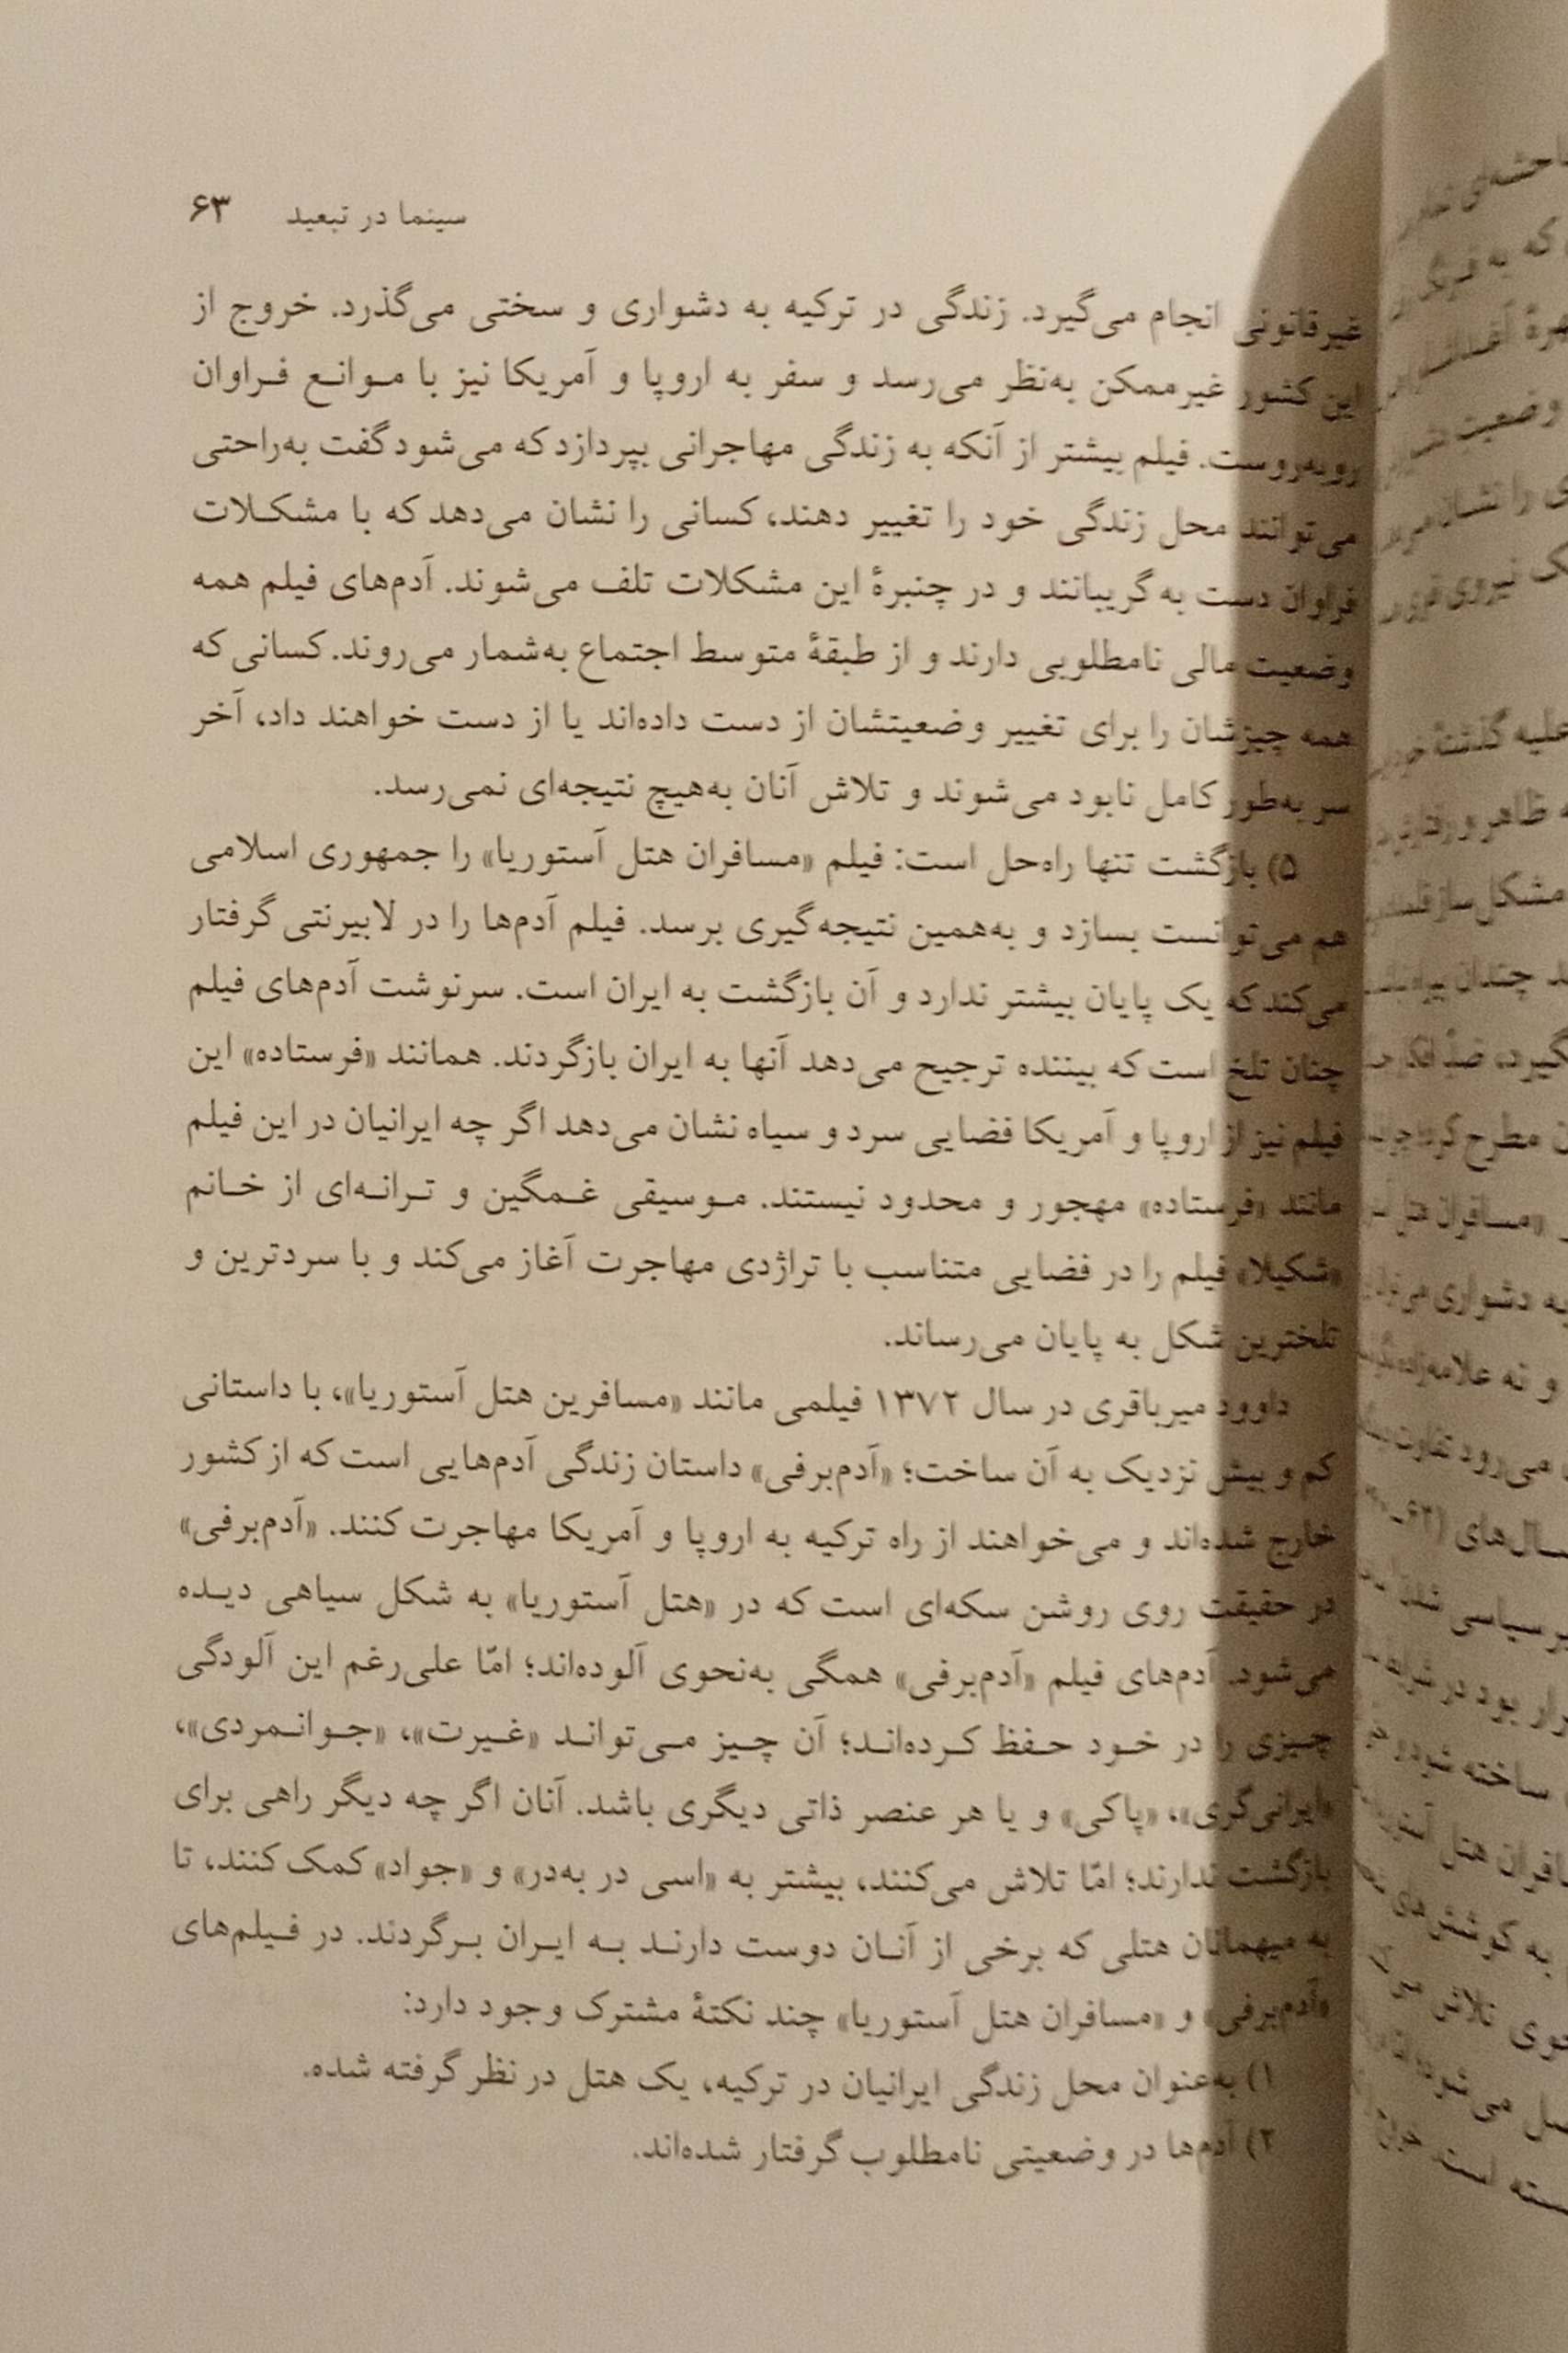 سینما در تبعید ۶۳
غیرقانونی انجام می‌گیرد. زندگی در ترکیه به دشواری و سختی می‌گذرد. خروج از
این کشور غیرممکن به‌نظر می‌رسد و سفر به اروپا و آمریکا نیز با موانع فراوان
روبه‌روست. فیلم بیشتر از آنکه به زندگی مهاجرانی بپردازد که می‌شود گفت به‌راحتی
می‌توانند محل زندگی خود را تغییر دهند، کسانی را نشان می‌دهد که با مشکلات
فراوان دست به گریبانند و در چنبرهٔ این مشکلات تلف می‌شوند. آدم‌های فیلم همه
وضعیت مالی نامطلوبی دارند و از طبقهٔ متوسط اجتماع به‌شمار می‌روند. کسانی که
همه چیزشان را برای تغییر وضعیتشان از دست داده‌اند یا از دست خواهند داد، آخر
سر به‌طور کامل نابود می‌شوند و تلاش آنان به‌هیچ نتیجه‌ای نمی‌رسد.
۵) بازگشت تنها راه‌حل است: فیلم «مسافران هتل آستوریا» را جمهوری اسلامی
هم می‌توانست بسازد و به‌همین نتیجه‌گیری برسد. فیلم آدم‌ها را در لابیرنتی گرفتار
می‌کند که یک پایان بیشتر ندارد و آن بازگشت به ایران است. سرنوشت آدم‌های فیلم
چنان تلخ است که بیننده ترجیح می‌دهد آنها به ایران بازگردند. همانند «فرستاده» این
فیلم نیز از اروپا و آمریکا فضایی سرد و سیاه نشان می‌دهد اگر چه ایرانیان در این فیلم
مانند «فرستاده» مهجور و محدود نیستند. موسیقی غمگین و ترانه‌ای از خانم
«شکیلا» فیلم را در فضایی متناسب با تراژدی مهاجرت آغاز می‌کند و با سردترین و
تلخترین شکل به پایان می‌رساند.
داوود میرباقری در سال ۱۳۷۲ فیلمی مانند «مسافرین هتل آستوریا»، با داستانی
کم و بیش نزدیک به آن ساخت؛ «آدم‌برفی» داستان زندگی آدم‌هایی است که از کشور
خارج شده‌اند و می‌خواهند از راه ترکیه به اروپا و آمریکا مهاجرت کنند. «آدم‌برفی»
در حقیقت روی روشن سکه‌ای است که در «هتل آستوریا» به شکل سیاهی دیده
می‌شود. آدم‌های فیلم «آدم‌برفی» همگی به‌نحوی آلوده‌اند؛ امّا علی‌رغم این آلودگی
چیزی را در خود حفظ کرده‌اند؛ آن چیز می‌تواند «غیرت»، «جوانمردی»،
«ایرانی‌گری»، «پاکی» و یا هر عنصر ذاتی دیگری باشد. آنان اگر چه دیگر راهی برای
بازگشت ندارند؛ امّا تلاش می‌کنند، بیشتر به «اسی در به‌در» و «جواد» کمک کنند، تا
به میهمانان هتلی که برخی از آنان دوست دارند به ایران برگردند. در فیلم‌های
«آدم‌برفی» و «مسافران هتل آستوریا» چند نکتهٔ مشترک وجود دارد:
۱) به‌عنوان محل زندگی ایرانیان در ترکیه، یک هتل در نظر گرفته شده.
۲) آدم‌ها در وضعیتی نامطلوب گرفتار شده‌اند.